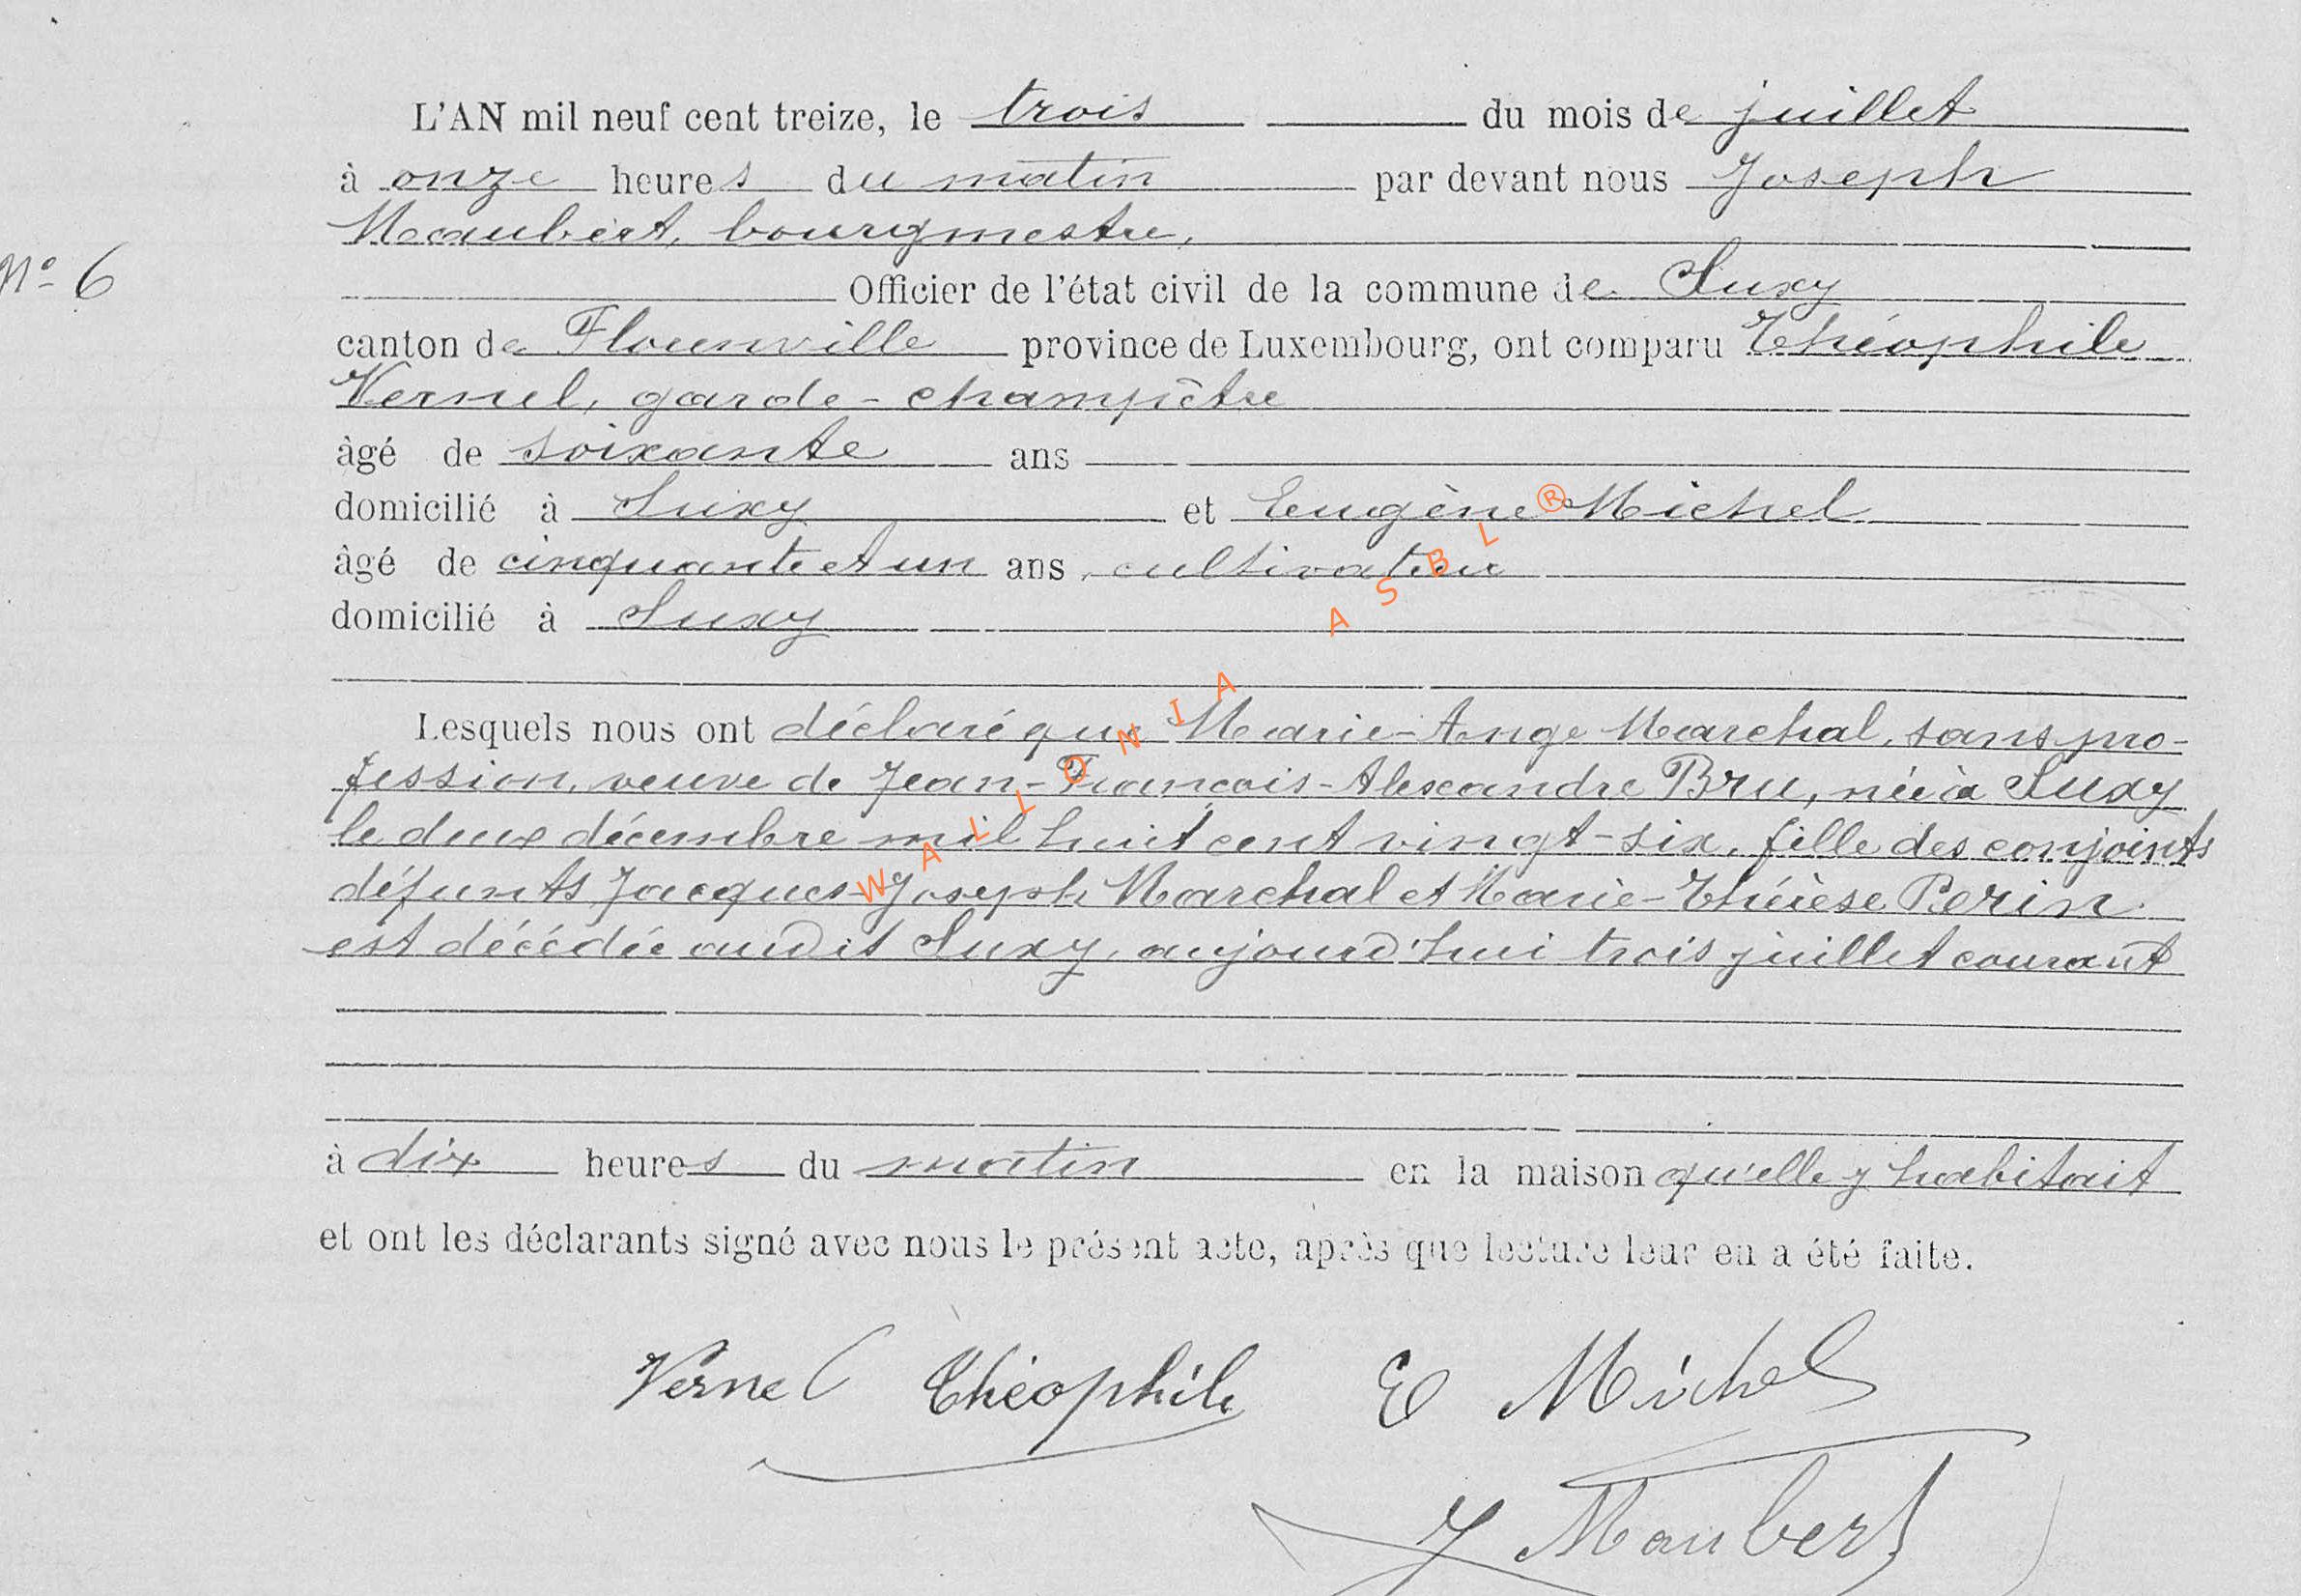 L'AN mil neuf cent treize, le trois du mois de juillet
à onze heures du matin par devant nous Joseph
Maubert, bourgmestre,
N° 6
Officier de l'état civil de la commune de Suxy
canton de Florenville province de Luxembourg, ont comparu Théophile
Vernel, garde-champêtre
âgé de soixante ans
domicilié à Suxy et Eugène Michel
âgé de cinquante et un ans, cultivateur
domicilié à Suxy
Lesquels nous ont déclaré que Marie-Ange Marchal, sans pro-
fession, veuve de Jean-François-Alexandre Bru, née à Suxy
le deux décembre mil huit cent vingt-six, fille des conjoints
défunts Jacques-Joseph Marchal et Marie-Thérèse Perin
est décédée audit Suxy, aujourd'hui trois juillet courant
à dix heures du matin en la maison qu'elle y habitait
et ont les déclarants signé avec nous le présent acte, après que lecture leur en a été faite.
Vernel Théophile E Michel
J Maubert
WALLONIA ASBL ®